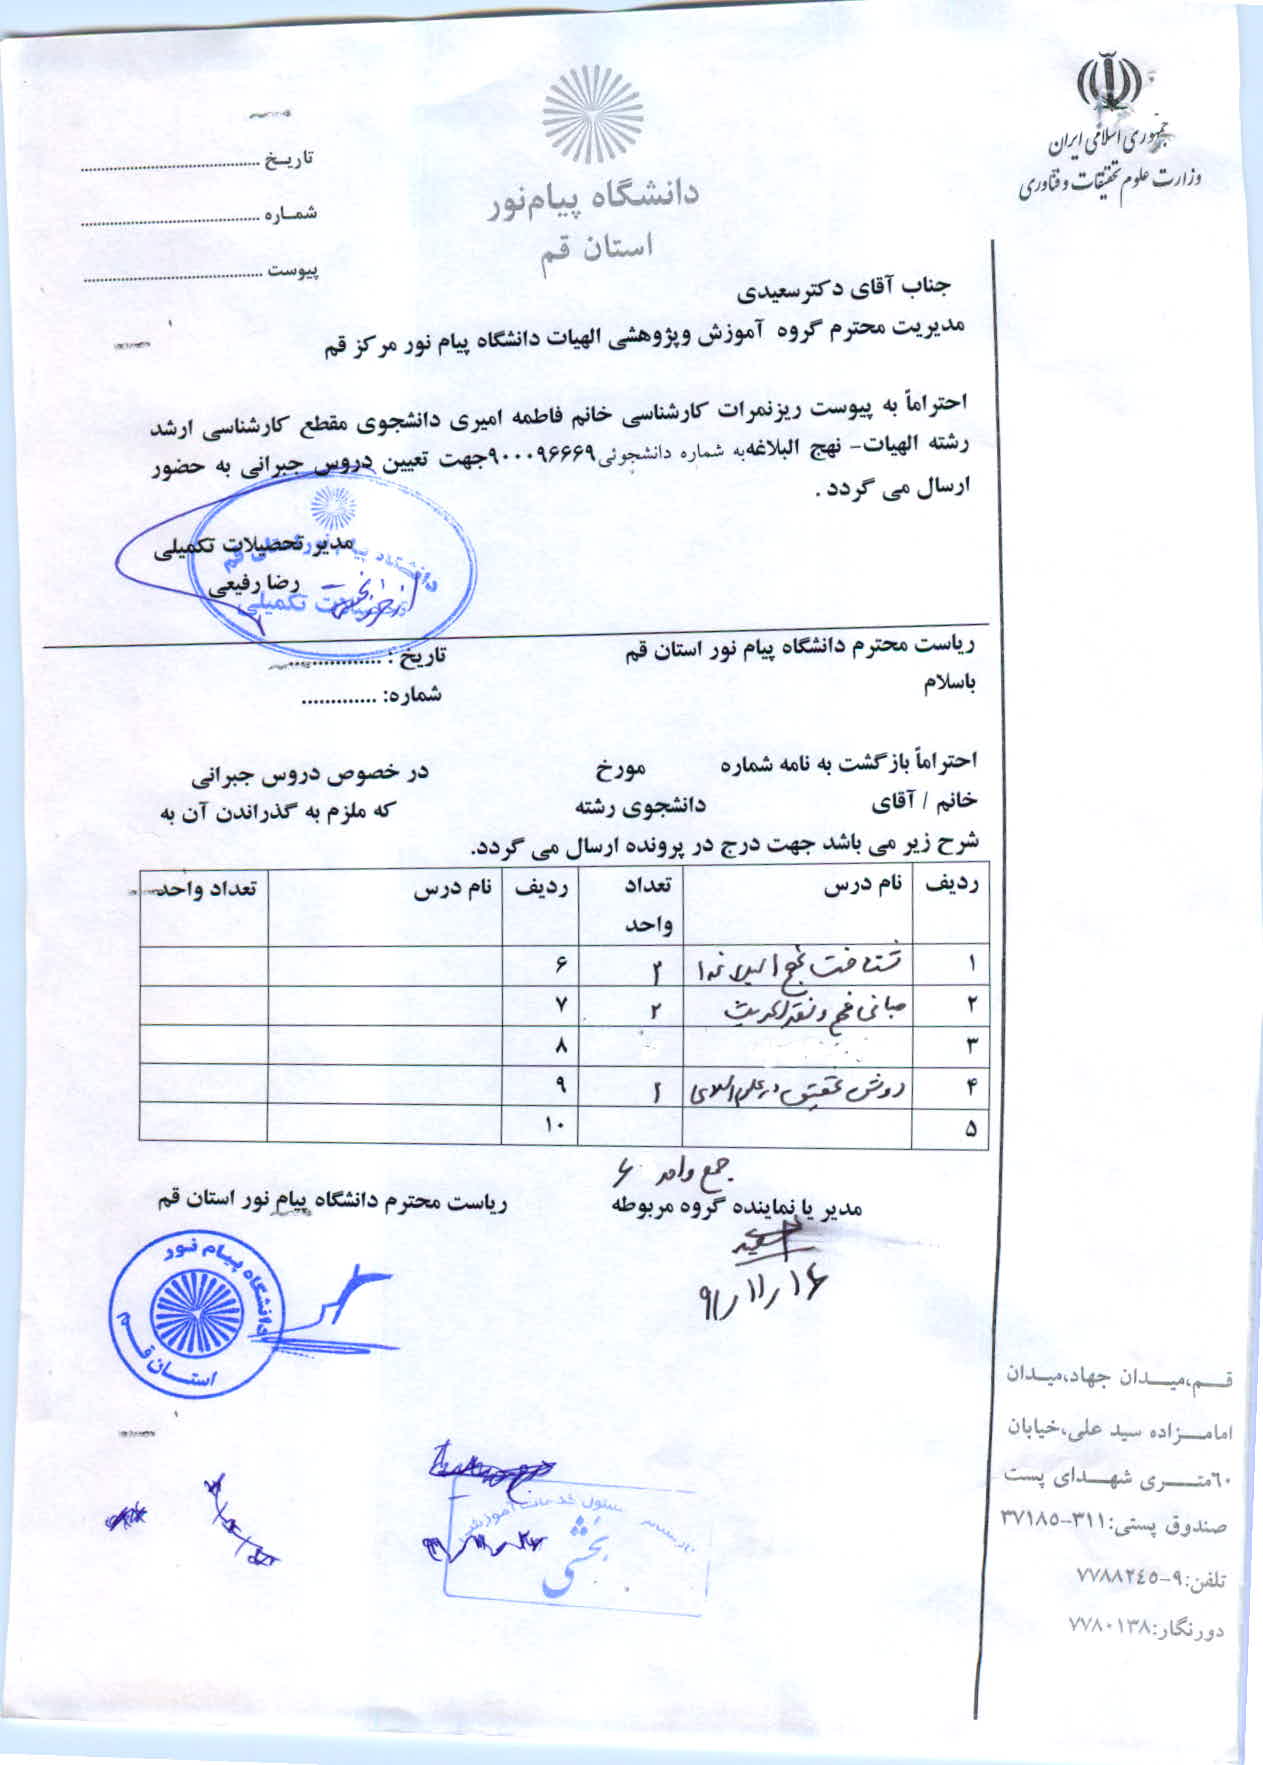 جمهوری اسلامی ایران
وزارت علوم تحقیقات و فناوری
دانشگاه پیام‌نور
استان قم
تاریـخ ............................................
شمـاره ............................................
پیوست ............................................
جناب آقای دکترسعیدی
مدیریت محترم گروه آموزش وپژوهشی الهیات دانشگاه پیام نور مرکز قم
احتراماً به پیوست ریزنمرات کارشناسی خانم فاطمه امیری دانشجوی مقطع کارشناسی ارشد
رشته الهیات- نهج البلاغه‌به شماره دانشجوئی۹۰۰۰۹۶۶۶۹جهت تعیین دروس جبرانی به حضور
ارسال می گردد .
مدیر تحصیلات تکمیلی
رضا رفیعی
دانشگاه پیام نور استان قم
تحصیلات تکمیلی
ریاست محترم دانشگاه پیام نور استان قم
تاریخ : ..............
باسلام
شماره: .............
احتراماً بازگشت به نامه شماره مورخ در خصوص دروس جبرانی
خانم / آقای دانشجوی رشته که ملزم به گذراندن آن به
شرح زیر می باشد جهت درج در پرونده ارسال می گردد.
ردیف نام درس تعداد واحد ردیف نام درس تعداد واحد
۱ شناخت نهج البلاغه ۱ ۲ ۶
۲ مبانی فهم و نقد الحدیث ۲ ۷
۳ ۸
۴ روش تحقیق در علم اسلامی ۲ ۹
۵ ۱۰
جمع واحد ۶
مدیر یا نماینده گروه مربوطه
ریاست محترم دانشگاه پیام نور استان قم
سعیدی
۹۱/۱۱/۱۶
دانشگاه پیـام نـور
استـــان قـــم
مسئول خدمات آموزشی
بخشی
قــم،میــدان جهاد،میـدان
امامــزاده سید علی،خیابان
٦٠متــری شهــدای پست
صندوق پستی:۳۱۱-۳۷۱۸۵
تلفن:۹-۷۷۸۸۲٤٥
دورنگار:۷۷۸۰۱۳۸